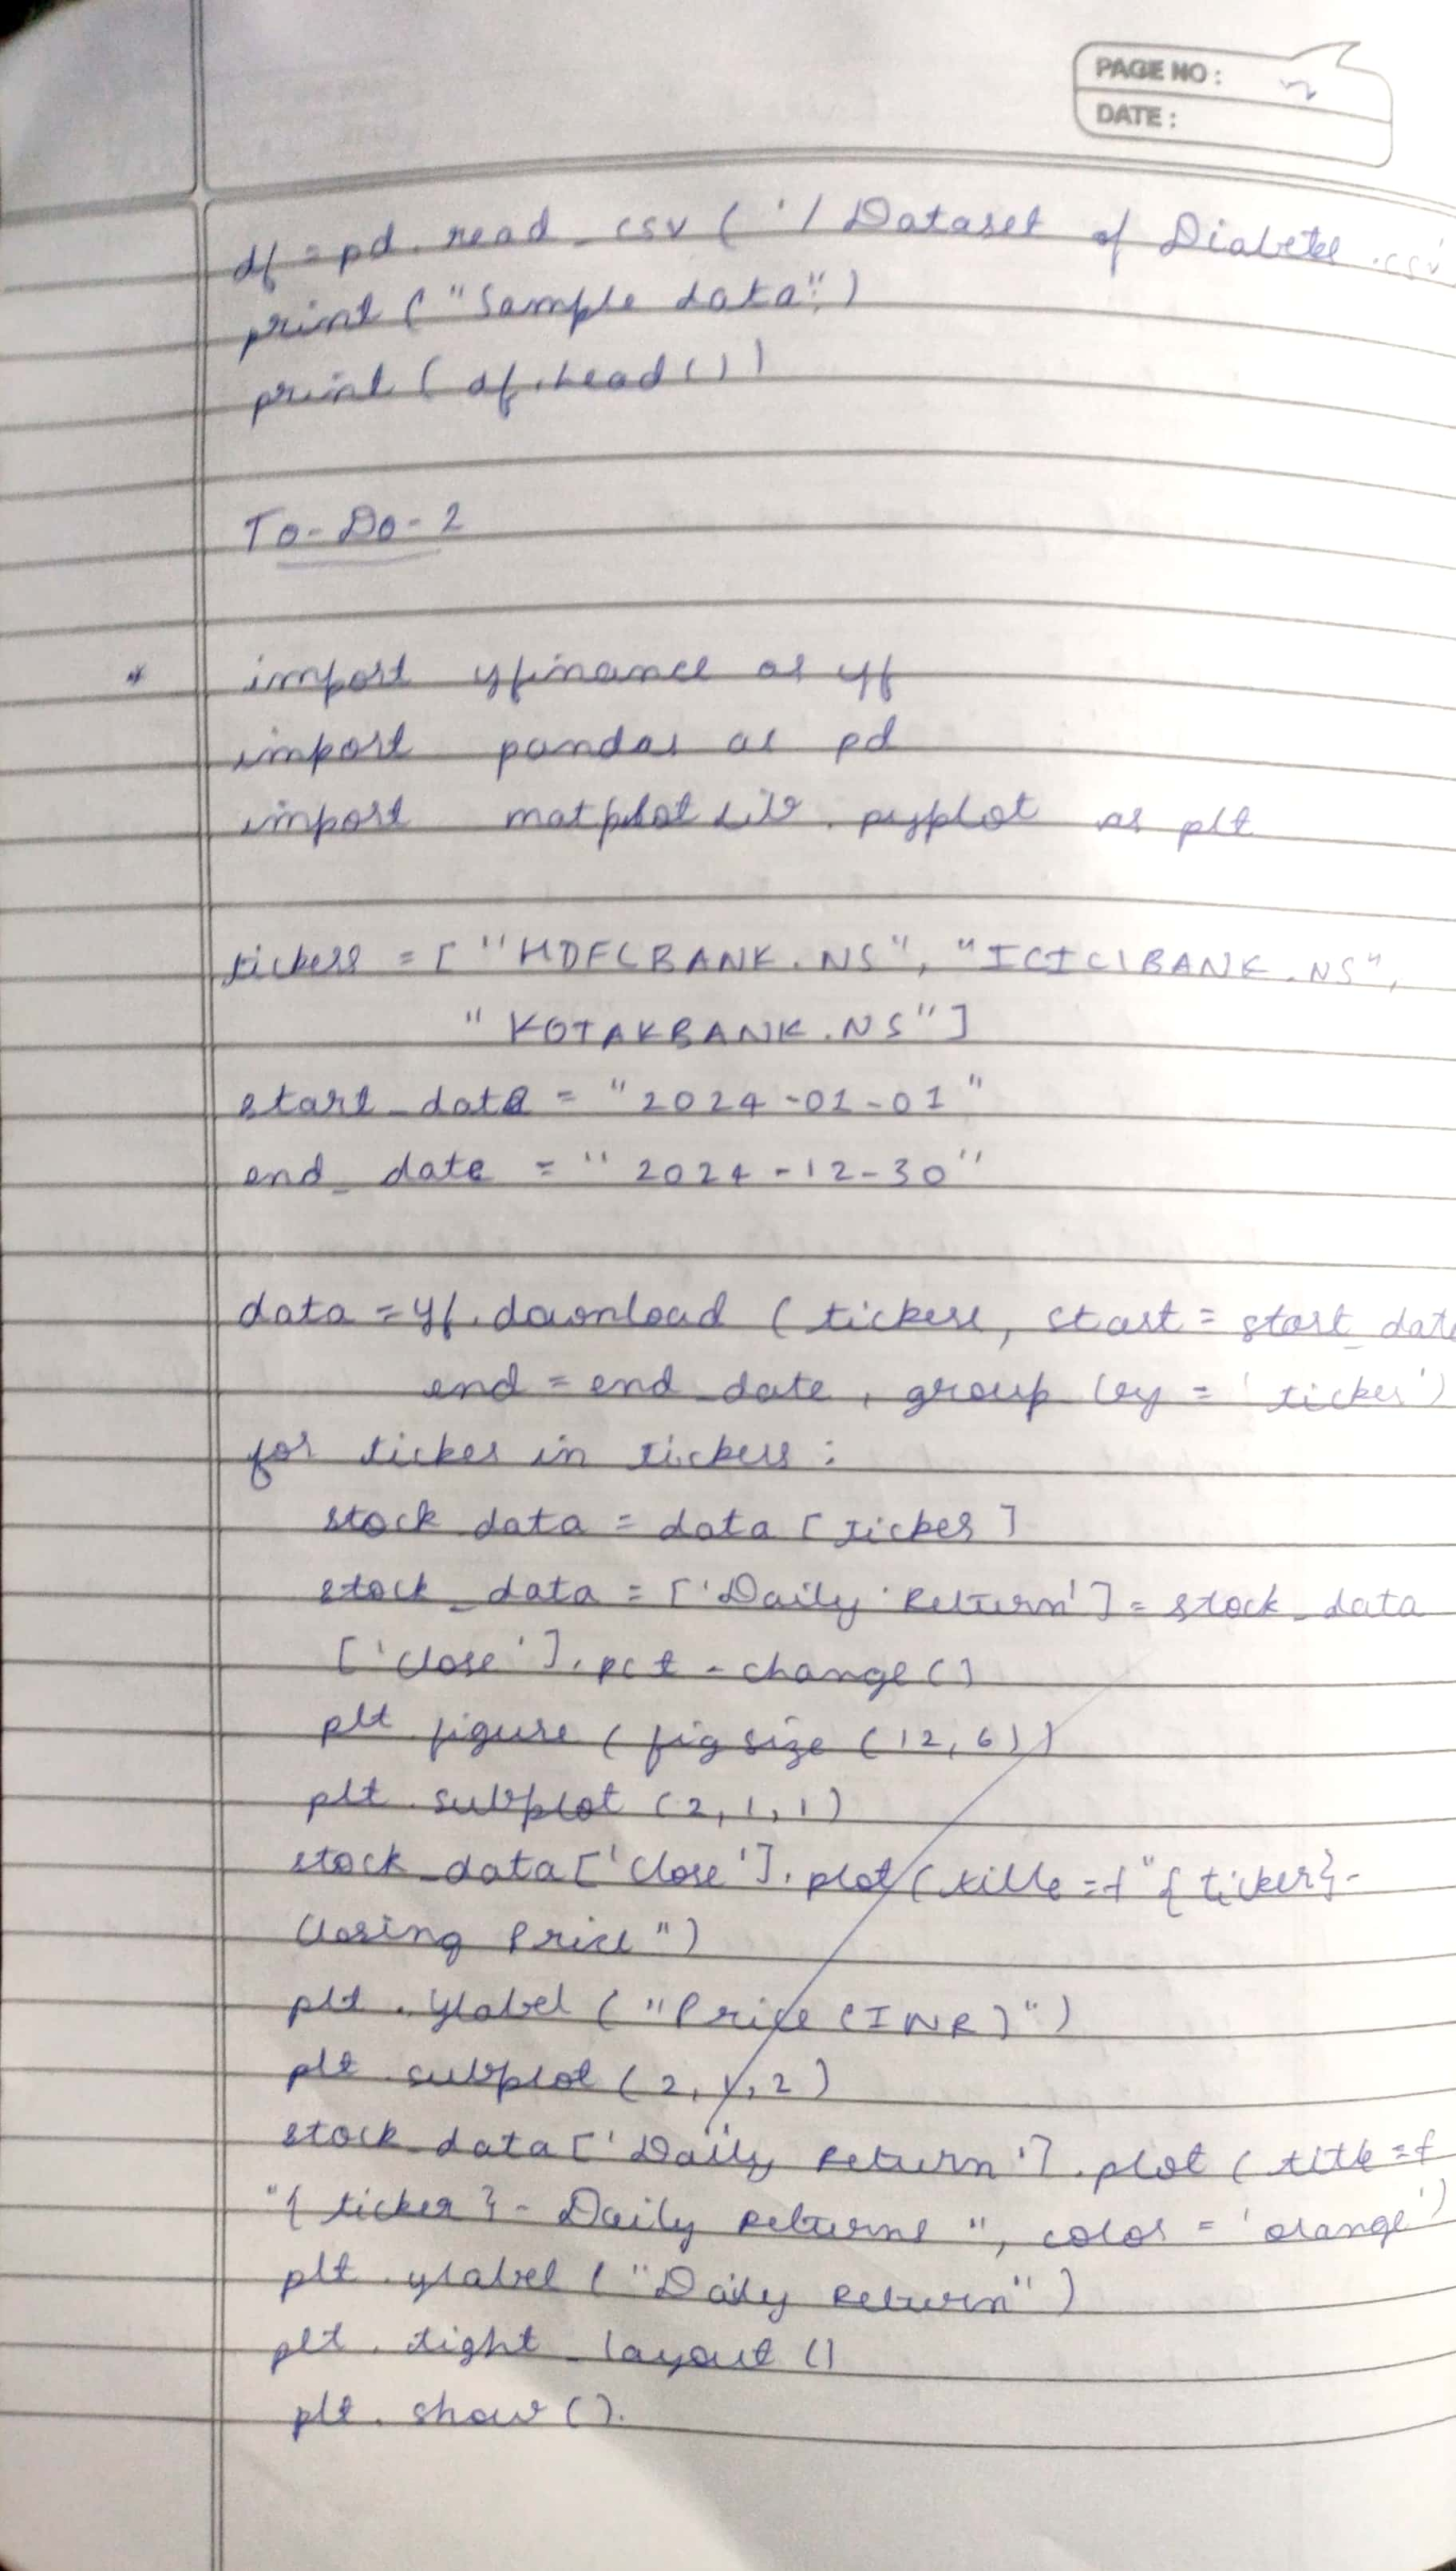 PAGE NO : 2
DATE :
df = pd. read_csv ( '/ Dataset of Diabetes .csv'
print ("Sample data")
print ( df.head ( ) )
To-Do-2
* import yfinance as yf
import pandas as pd
import matplotlib. pyplot as plt
tickers = [ "HDFCBANK.NS", "ICICIBANK.NS",
"KOTAKBANK.NS"]
start_date = "2024-01-01"
end_date = "2024-12-30"
data = yf. download ( tickers, start = start_date
end = end_date, group by = 'ticker')
for ticker in tickers :
stock data = data [ ticker ]
stock_data = ['Daily Return'] = stock_data
['close']. pct - change ( )
plt. figure ( fig size (12, 6) )
plt. subplot (2, 1, 1)
stock_data ['close']. plot ( title = f "{ ticker} -
Closing Price")
plt. ylabel ("Price (INR)")
plt. subplot (2, 1, 2)
stock_data ['Daily Return']. plot ( title = f
"{ ticker } - Daily Returns", color = 'orange')
plt. ylabel ("Daily Return")
plt. tight_layout ()
plt. show ().